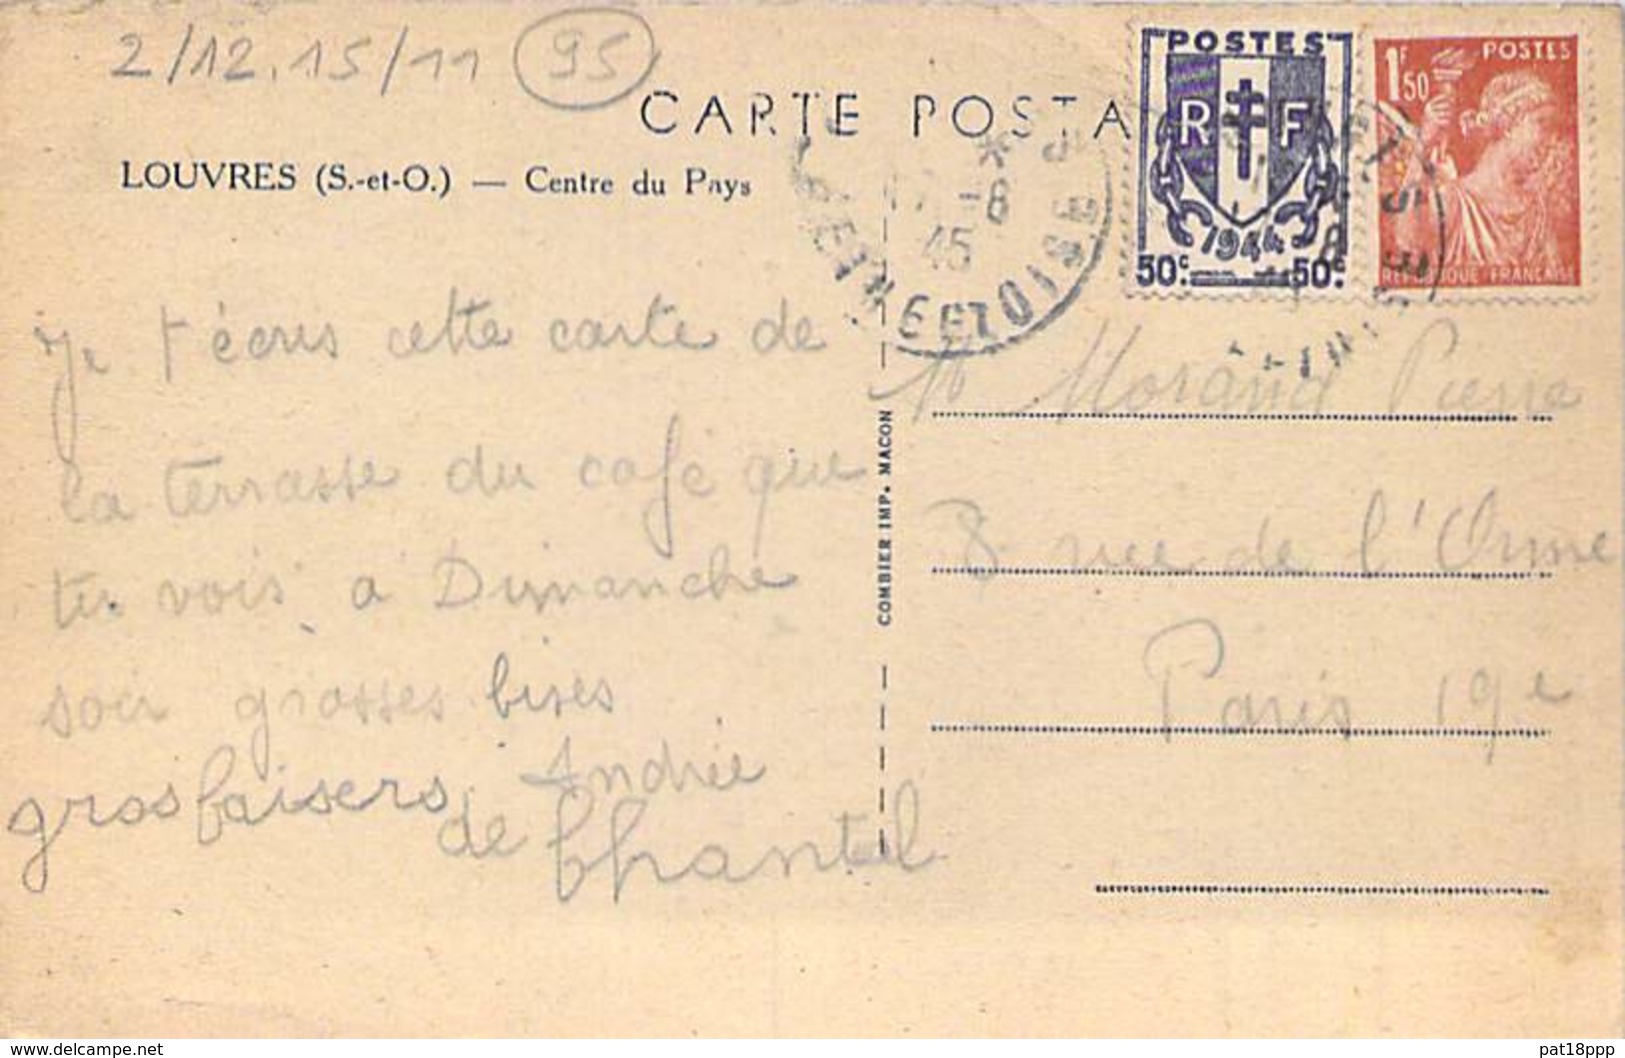 2/12.15/11 95
CARTE POSTA
LOUVRES (S.-et-O.) — Centre du Pays
17 -8
45
SEINE ET OISE
POSTES
RF
1944
50c. 50c.
1F50
POSTES
REPUBLIQUE FRANÇAISE
Je t'écris cette carte de
la terrasse du café que
tu vois à Dimanche
soir grosses bises
Andrée
gros baisers
de Chantal
COMBIER IMP. MACON
Mr Morand Pierre
8 rue de l'Orme
Paris 19e
pat18ppp